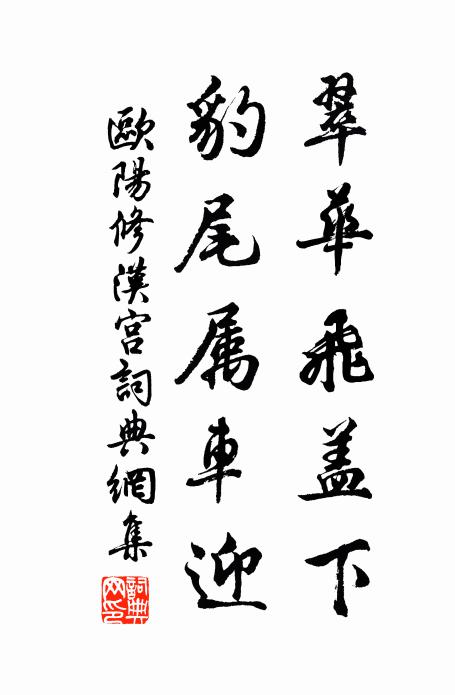 翠華飛盖下
豹尾属車迎
歐陽修漢宮詞典網集
詞典網印